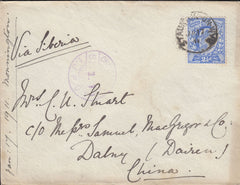 Via Siberia
Mrs C. U. Stuart
c/o Messrs Samuel, MacGregor & Co.
Dalny (Dairen)
China.
Jan 17. 1911. Mornington